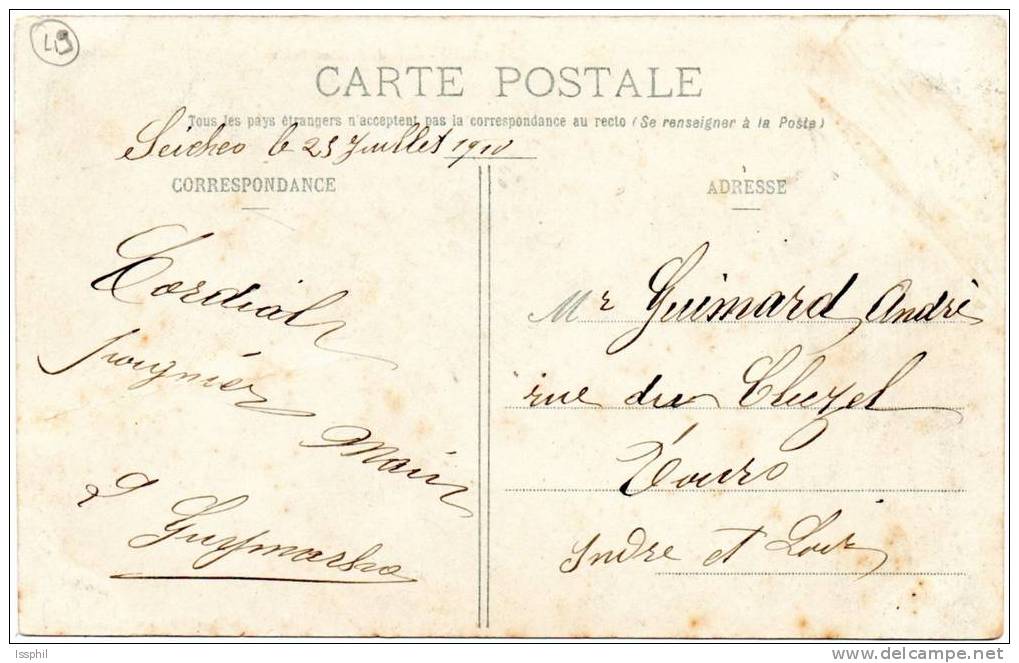 L19
CARTE POSTALE
Tous les pays étrangers n'acceptent pas la correspondance au recto (Se renseigner à la Poste)
Seiches le 25 Juillet 1910
CORRESPONDANCE
ADRESSE
Cordial
poignée
Main
Mr Guimard André
rue du Cluzel
Tours
Indre et Loir
Issphil
http://www.delcampe.net